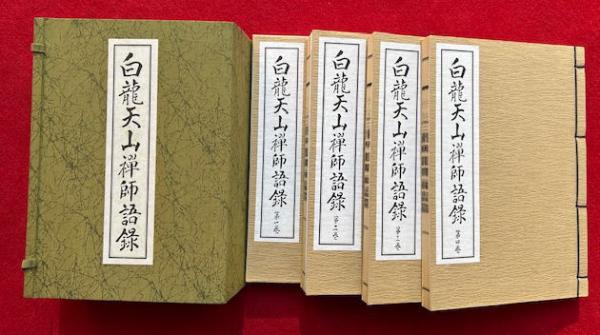 白龍天山禅師語録
白龍天山禅師語録
第一巻
白龍天山禅師語録
第二巻
白龍天山禅師語録
第三巻
白龍天山禅師語録
第四巻